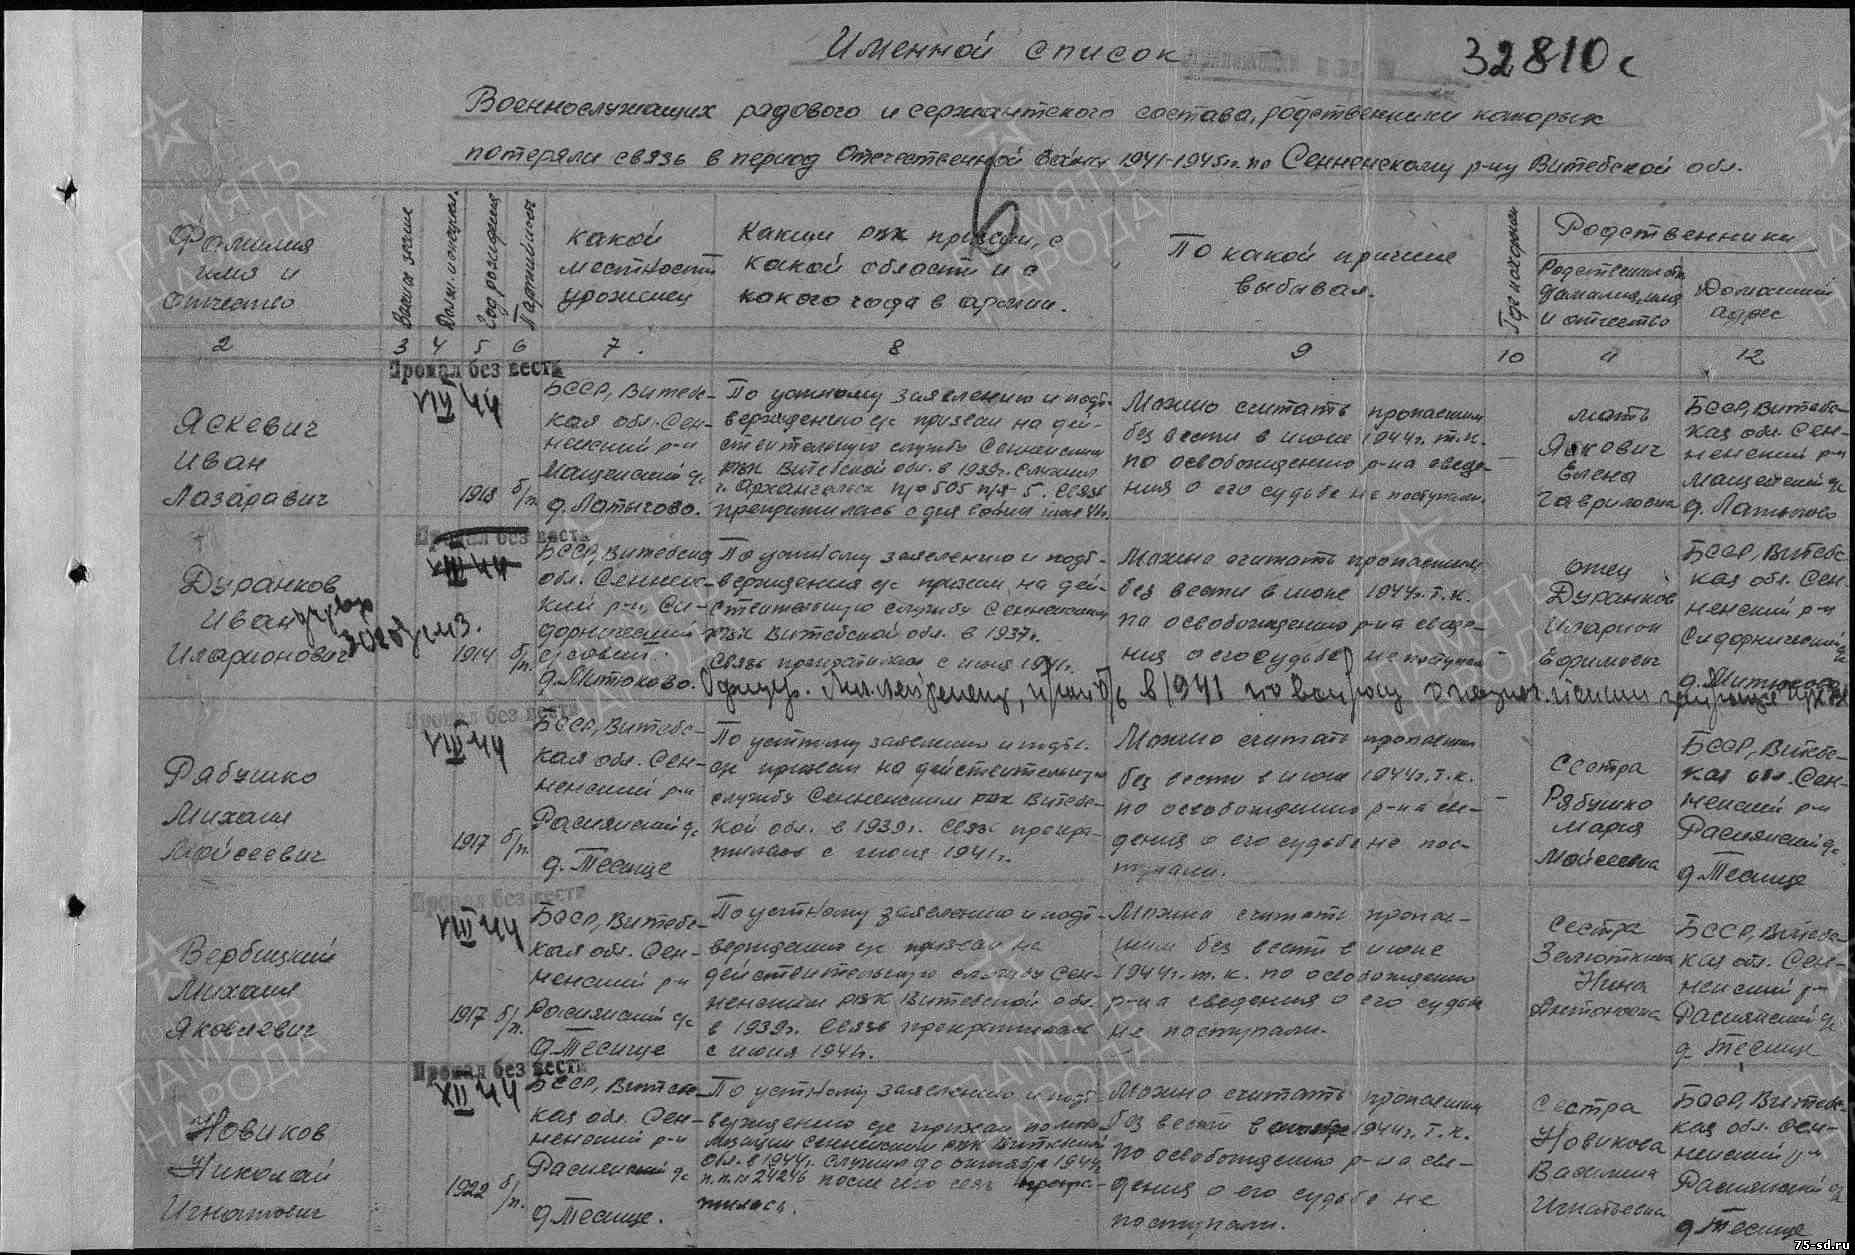 Именной список
32810с
Военнослужащих рядового и сержантского состава, родственники которых
потеряли связь в период Отечественной войны 1941-1945гг. по Сенненскому р-ну Витебской обл.
Фамилия
имя и
отчество
Год рождения
Партийность
какой
местности
уроженец
Каким рвк призван, с
какой области и с
какого года в армии.
По какой причине
выбывал.
Родственники
фамилия, имя
и отчество
Домашний
адрес
2 3 4 5 6 7. 8 9 10 11 12
Пропал без вести
VIII 44
Яскевич
Иван
Лазаравич
1918
б/п.
БССР, Витебс-
кая обл. Сен-
ненский р-н
Мащенский с/с
д. Латыгово.
По устному заявлению и подт-
верждению с/с призван на дей-
ствительную службу Сенненским
рвк Витебской обл. в 1939г. Служил
г. Архангельск п/о 505 п/я-5. Связь
прекратилась с дня
Можно считать пропавшим
без вести в июне 1944г. т.к.
по освобождению р-на сведе-
ния о его судьбе не поступали.
мать
Яскович
Елена
Гавриловна
БССР, Витебс-
кая обл. Сен-
ненский р-н
Мащенский с/с
д. Латыгово
Пропал без вести
Дуранков
Иван
Иларионович
1914
б/п.
БССР, Витебская
обл. Сеннен-
кий р-н, Си-
дорнический
с/совет.
д. Митюково.
По устному заявлению и подт-
верждения с/с призван на дей-
ствительную службу Сенненским
рвк Витебской обл. в 1937г.
Связь прекратилась с июня 1941г.
Можно считать пропавшим
без вести в июне 1944г. т.к.
по освобождению р-на сведе-
ния о его судьбе не поступали
отец
Дуранков
Иларион
Ефимович
БССР, Витебс-
кая обл. Сен-
ненский р-н
Сидорнический с/с
д. Митюково
Офицер.
в 1941 по вопросу
Пропал без вести
VIII 44
Рябушко
Михаил
Мойсеевич
1917
б/п.
БССР, Витебс-
кая обл. Сен-
ненский р-н
Расиянский с/с
д. Тесище
По устному заявлению и подтв.
с/с призван на действительную
службу Сенненским рвк Витебс-
кой обл. в 1939г. Связь прекра-
тилась с июня 1941г.
Можно считать пропавшим
без вести в июне 1944г. т.к.
по освобождению р-на све-
дения о его судьбе не пос-
тупали.
сестра
Рябушко
Мария
Мойсеевна
БССР, Витебс-
кая обл. Сен-
ненский р-н
Расиянский с/с
д. Тесище
Пропал без вести
VIII 44
Вербицкий
Михаил
Яковлевич
1917
б/п.
БССР, Витебс-
кая обл. Сен-
ненский р-н
Расиянский с/с
д. Тесище
По устному заявлению и подт-
верждения с/с призван на
действительную службу Сен-
ненским рвк Витебской обл.
в 1939г. Связь прекратилась
с июня 1941г.
Можно считать пропав-
шим без вести в июне
1944г. т.к. по освобождению
р-на сведения о его судьбе
не поступали.
сестра
Нина
Антоновна
БССР, Витебс-
кая обл. Сен-
ненский р-н
Расиянский с/с
д. Тесище
Пропал без вести
XII 44
Новиков
Николай
Игнатович
1922
б/п.
БССР, Витебс-
кая обл. Сен-
ненский р-н
Расиянский с/с
д. Тесище.
По устному заявлению и подт-
верждению с/с призван по моби-
лизации Сенненским рвк Витебской
обл. в 1944г. Служил до октября 1944г.
п.п. № 24246 после чего связь прекра-
тилась.
Можно считать пропавшим
без вести в октябре 1944г. т.к.
по освобождению р-на све-
дения о его судьбе не
поступали.
сестра
Новикова
Василина
Игнатьевна
БССР, Витебс-
кая обл. Сен-
ненский р-н
Расиянский с/с
д. Тесище
ПАМЯТЬ НАРОДА
75-sd.ru